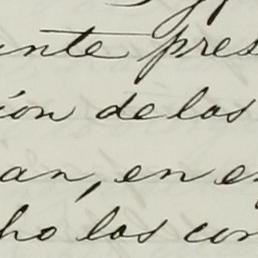 ente pres
ión de las
an, en e
ho las con